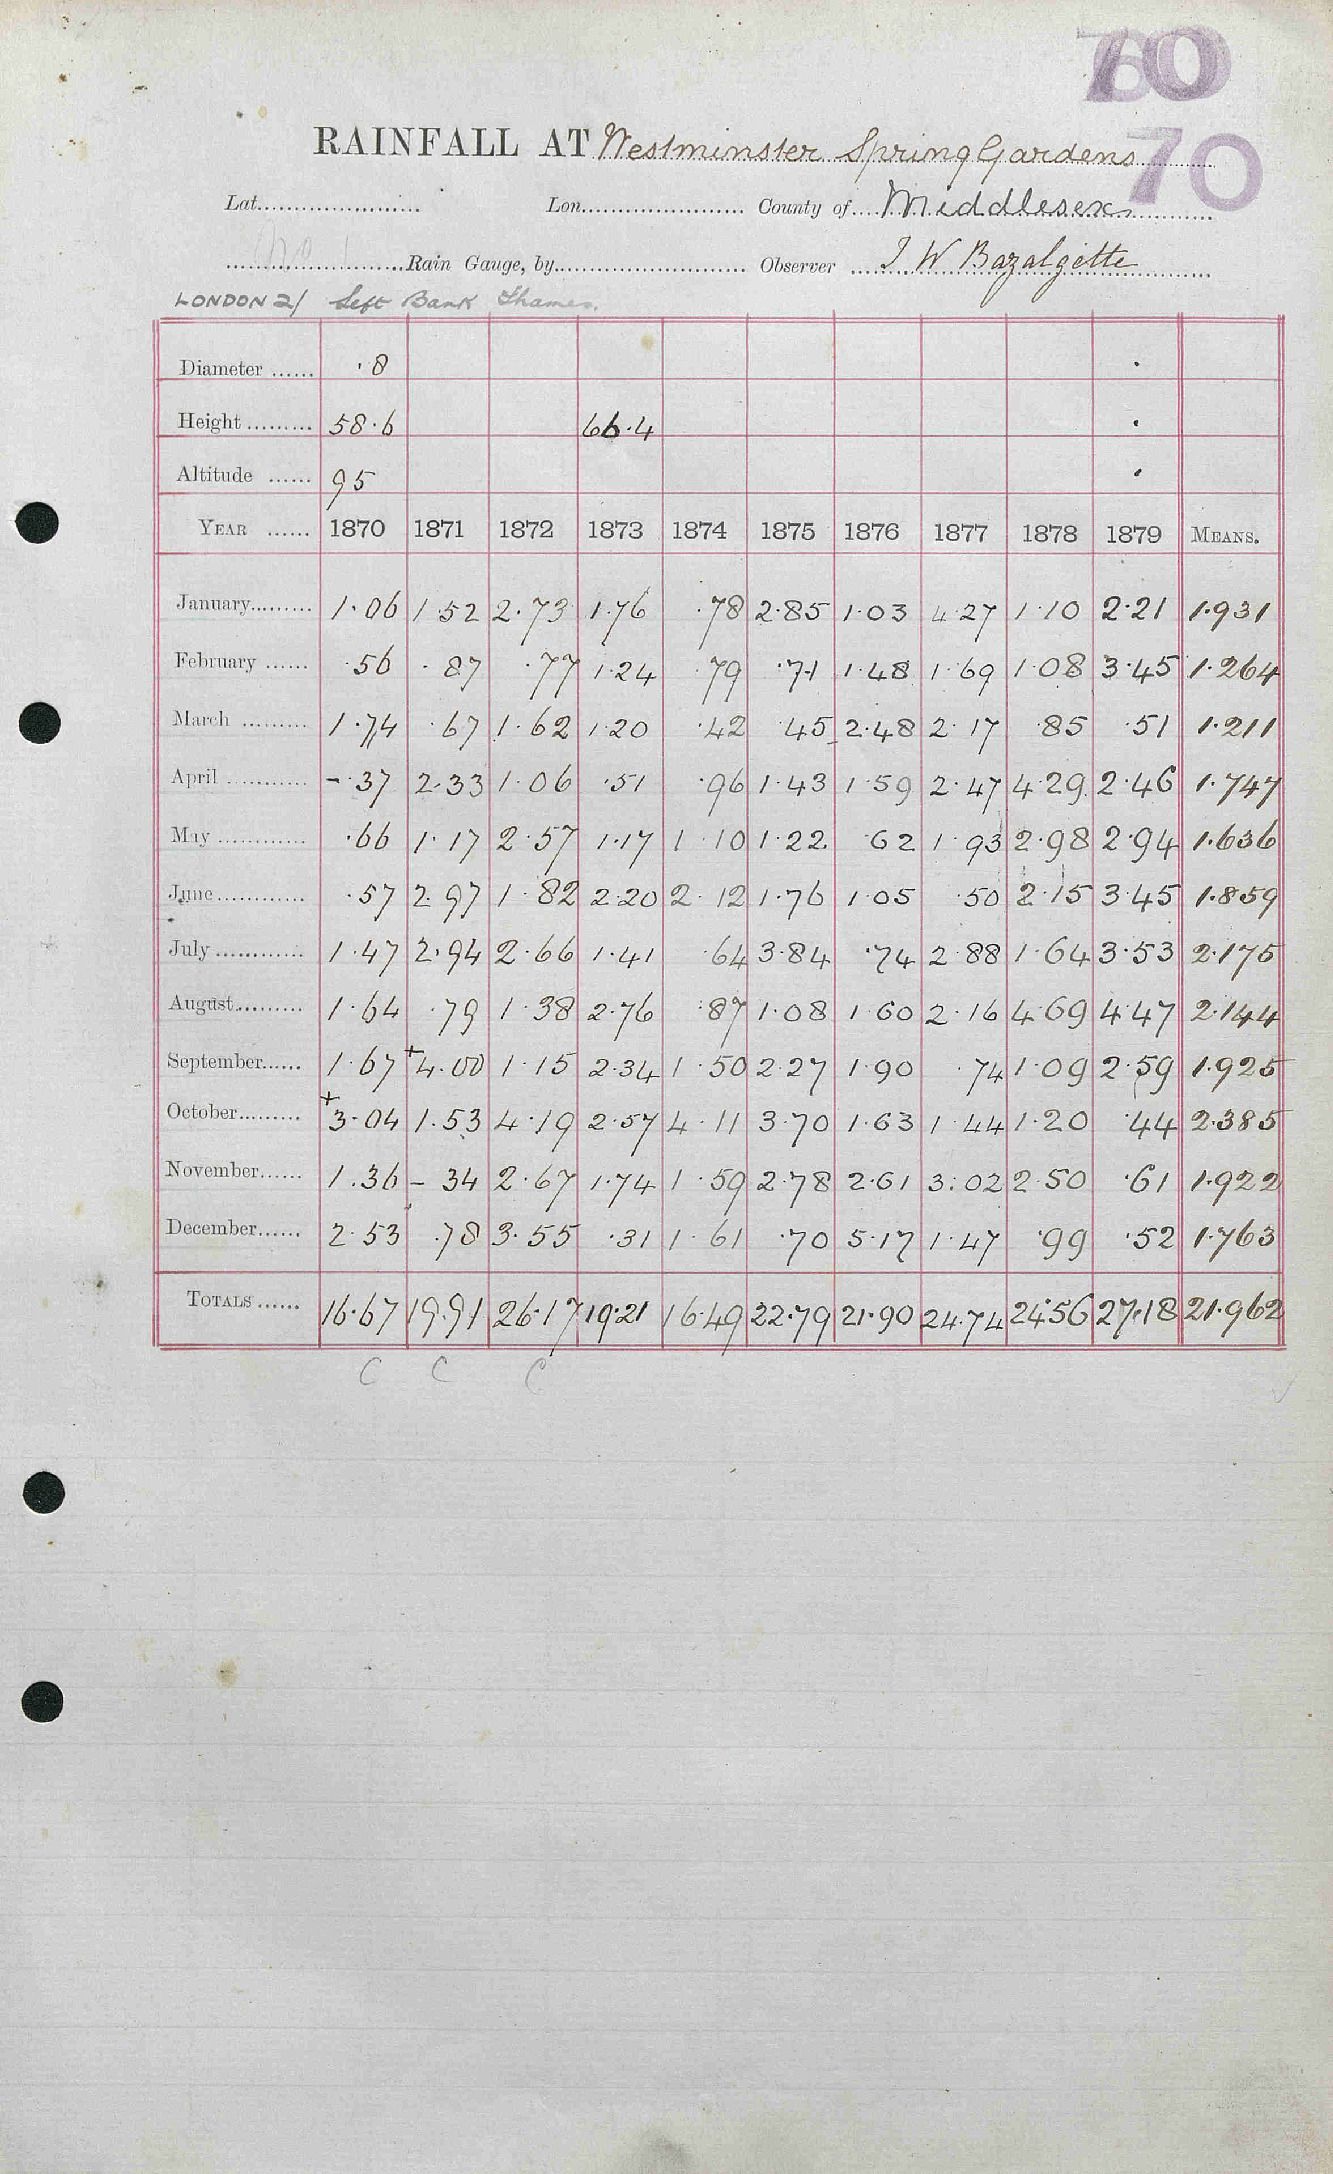 70
RAINFALL AT Westminster Spring Gardens
70
Lat. Lon. County of Middlesex
Rain Gauge, by Observer J W Bazalgette
LONDON 2/ Left Bank Thames.
Diameter ...... ·8
Height ......... 58·6 66·4
Altitude ...... 95
YEAR ...... 1870 1871 1872 1873 1874 1875 1876 1877 1878 1879 MEANS.
January......... 1·06 1 52 2·73 1·76 ·78 2·85 1·03 4·27 1·10 2·21 1·931
February ...... ·56 ·87 ·77 1·24 ·79 ·71 1·48 1·69 1·08 3·45 1·264
March ......... 1·74 ·67 1·62 1·20 ·42 45 2·48 2·17 ·85 ·51 1·211
April ............ -·37 2·33 1·06 ·51 ·96 1·43 1·59 2·47 4·29 2·46 1·747
May ............ ·66 1·17 2·57 1·17 1·10 1·22 ·62 1·93 2·98 2·94 1·636
June............ ·57 2·97 1·82 2·20 2·12 1·76 1·05 ·50 2·15 3·45 1·859
July ............ 1·47 2·94 2·66 1·41 ·64 3·84 ·74 2·88 1·64 3·53 2·175
August......... 1·64 ·79 1·38 2·76 ·87 1·08 1·60 2·16 4·69 4·47 2·144
September...... 1·67 +4·00 1·15 2·34 1·50 2·27 1·90 ·74 1·09 2·59 1·925
October......... +3·04 1·53 4·19 2·57 4·11 3·70 1·63 1·44 1·20 ·44 2·385
November...... 1·36 - 34 2·67 1·74 1·59 2·78 2·61 3·02 2·50 ·61 1·922
December...... 2·53 ·78 3·55 ·31 1·61 ·70 5·17 1·47 ·99 ·52 1·763
TOTALS ...... 16·67 19·91 26·17 19·21 16·49 22·79 21·90 24·74 24·56 27·18 21·962
C C C